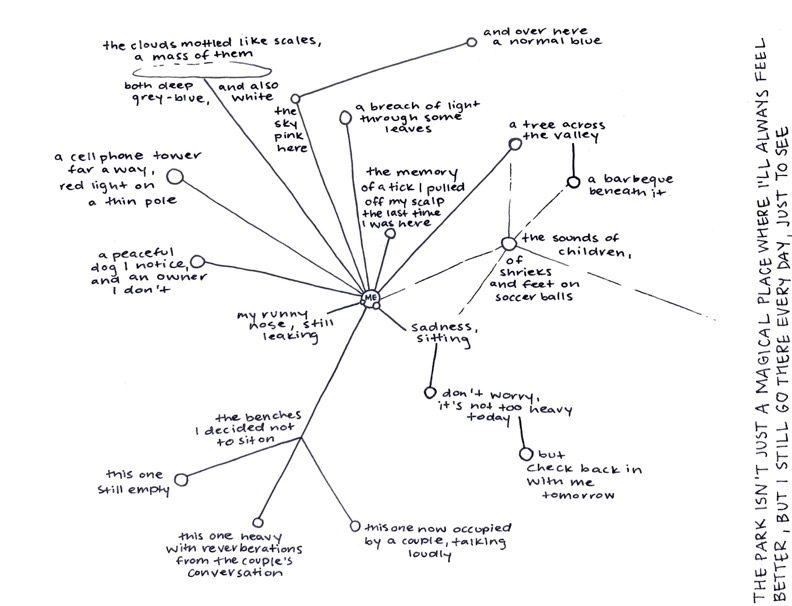 the clouds mottled like scales,
a mass of them
both deep
grey-blue,
and also
white
the
sky
pink
here
and over here
a normal blue
a breach of light
through some
leaves
a tree across
the valley
a barbeque
beneath it
a cell phone tower
far away,
red light on
a thin pole
the memory
of a tick I pulled
off my scalp
the last time
I was here
a peaceful
dog I notice,
and an owner
I don't
the sounds of
children,
of
shrieks
and feet on
soccer balls
ME
my runny
nose, still
leaking
sadness,
sitting
don't worry,
it's not too heavy
today
but
check back in
with me
tomorrow
the benches
I decided not
to sit on
this one
still empty
this one heavy
with reverberations
from the couple's
conversation
this one now occupied
by a couple, talking
loudly
THE PARK ISN'T JUST A MAGICAL PLACE WHERE I'LL ALWAYS FEEL
BETTER, BUT I STILL GO THERE EVERY DAY, JUST TO SEE